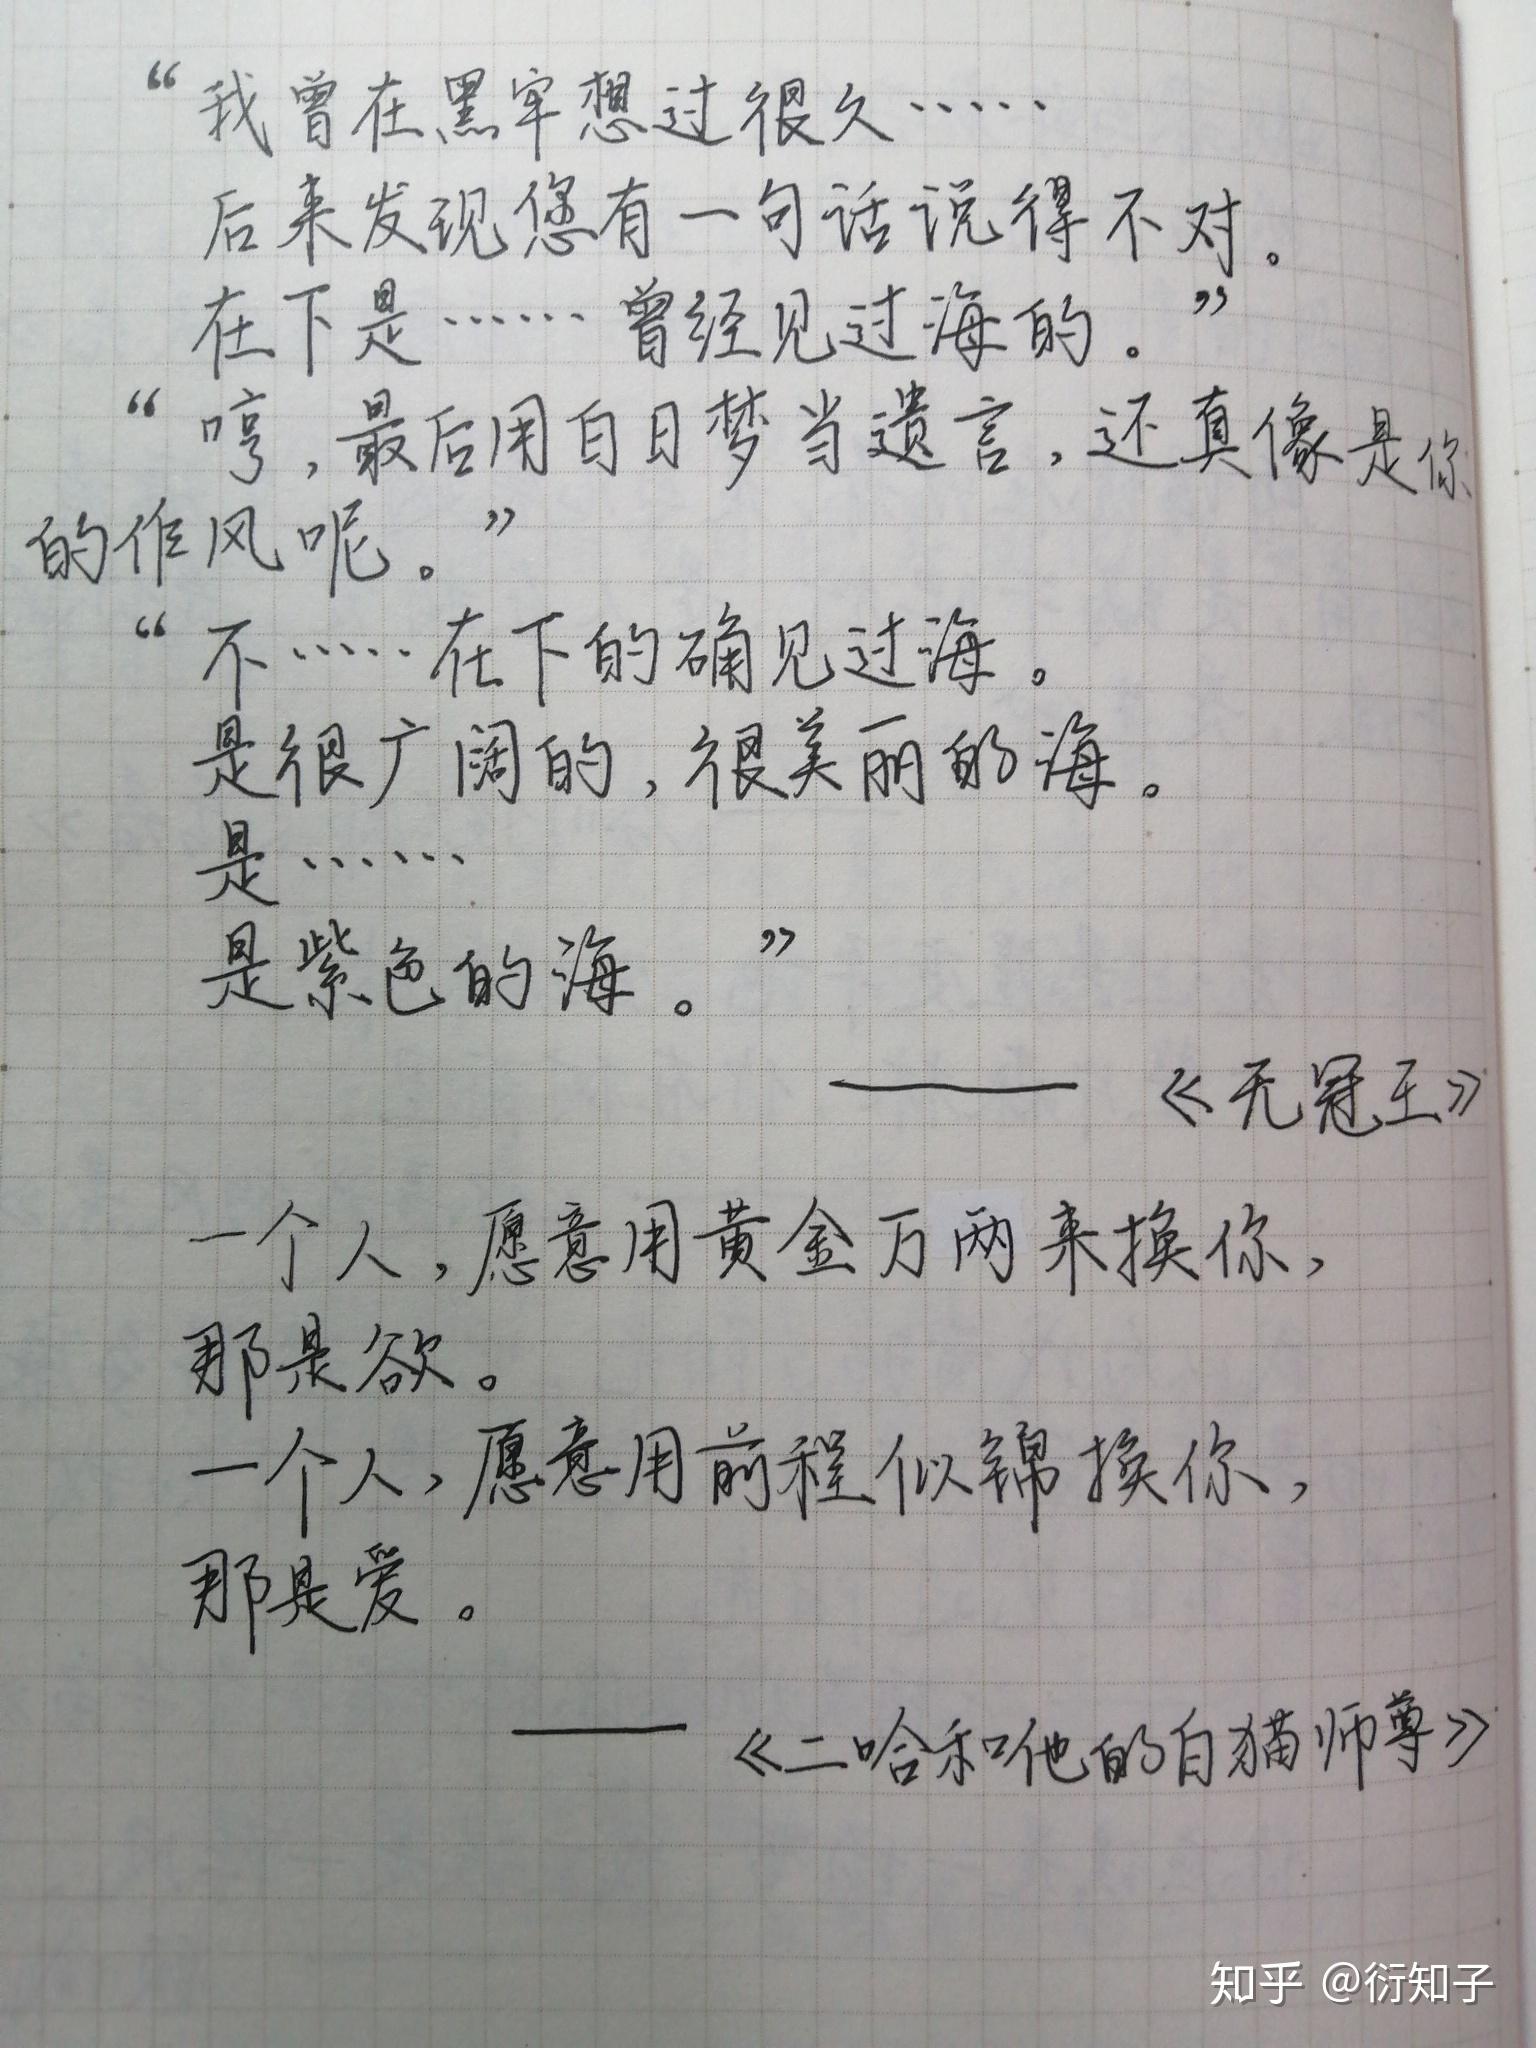 “我曾在黑牢想过很久……
后来发现您有一句话说得不对。
在下是……曾经见过海的。”
“哼，最后用白日梦当遗言，还真像是你
的作风呢。”
“不……在下的确见过海。
是很广阔的，很美丽的海。
是……
是紫色的海。”
——《无冠王》
一个人，愿意用黄金万两来换你，
那是欲。
一个人，愿意用前程似锦换你，
那是爱。
——《二哈和他的白猫师尊》
知乎 @衍知子